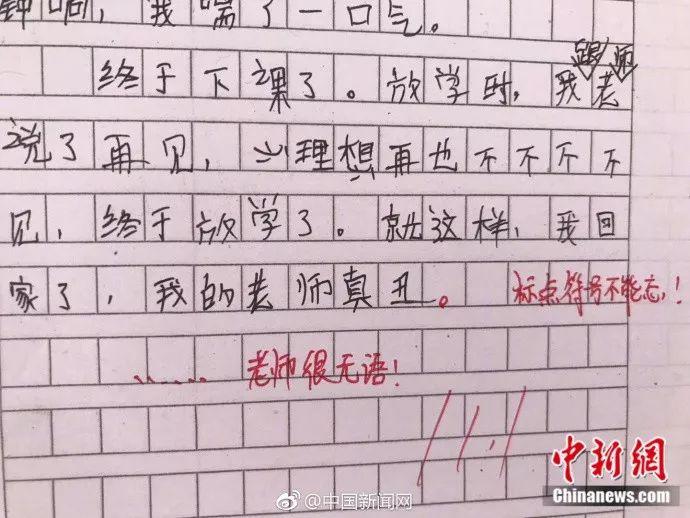 钟响，我喘了一口气。
终于下课了。放学时，我跟老师
说了再见，心理想再也不不不不
见，终于放学了。就这样，我回
家了，我的老师真丑。 标点符号不能忘！
…… 老师很无语！
11.1
中新网
Chinanews.com
@中国新闻网